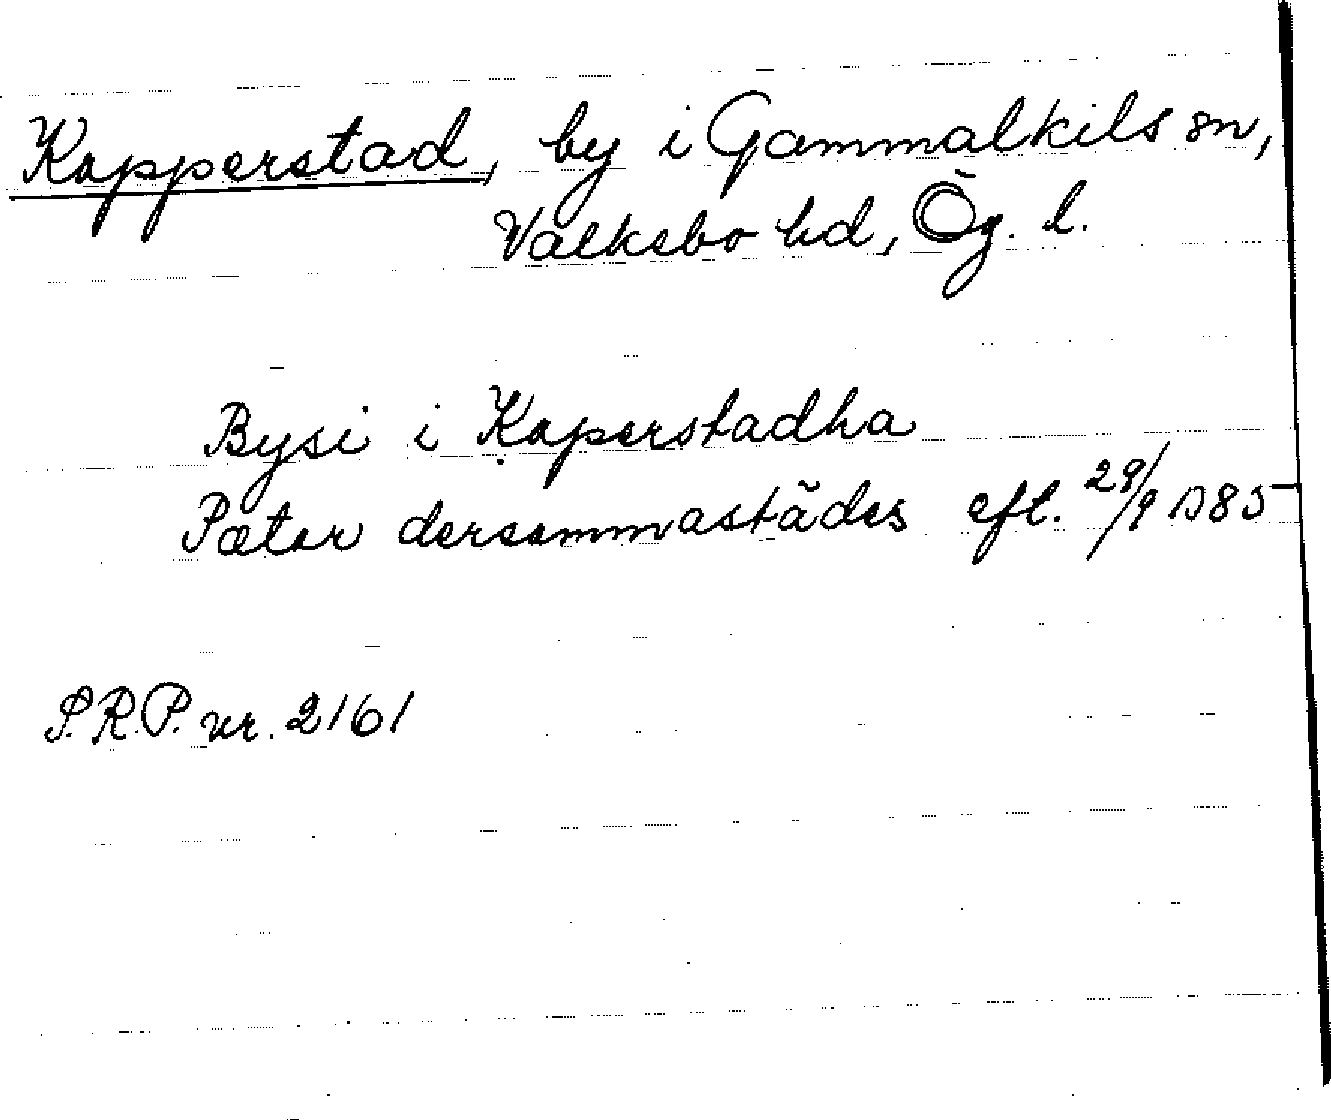 Kopperstad, by i Gammalkils sn,
Valkebo hd, Ög. l.
Bysi i Koperstadha
Pætar dersammastädes eft. 29/9 1385
S.R.P. nr. 2161